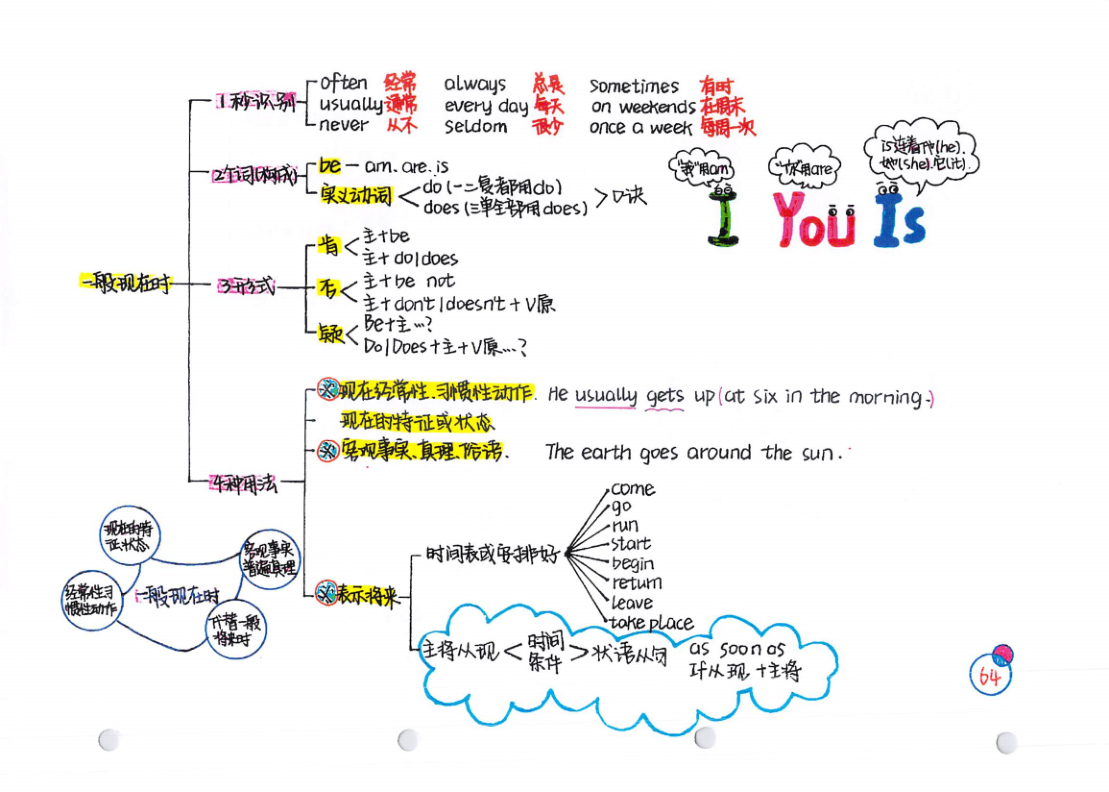 1秒识别
often 经常 always 总是 sometimes 有时
usually 通常 every day 每天 on weekends 在周末
never 从不 seldom 很少 once a week 每周一次
2谓词(构成)
be — am.are.is
实义动词 < do (一二复者都用do)
does (三单全部用does) > 口诀
"我"用am
"你"用are
is连着他(he).
她(she).它(it).
I You Is
一般现在时
3形式
肯 < 主+be
主+do|does
否 < 主+be not
主+don't|doesn't + V原
疑 < Be+主…?
Do|Does+主+V原…?
4种用法
现在经常性、习惯性动作. He usually gets up (at six in the morning.)
现在的特征或状态
客观事实、真理、俗语. The earth goes around the sun.
表示将来
时间表或安排好
come
go
run
start
begin
return
leave
take place
主将从现 < 时间
条件 > 状语从句
as soon as
If从现,+主将
现在的特
征、状态
客观事实
普遍真理
经常性习
惯性动作
一般现在时
代替一般
将来时
64